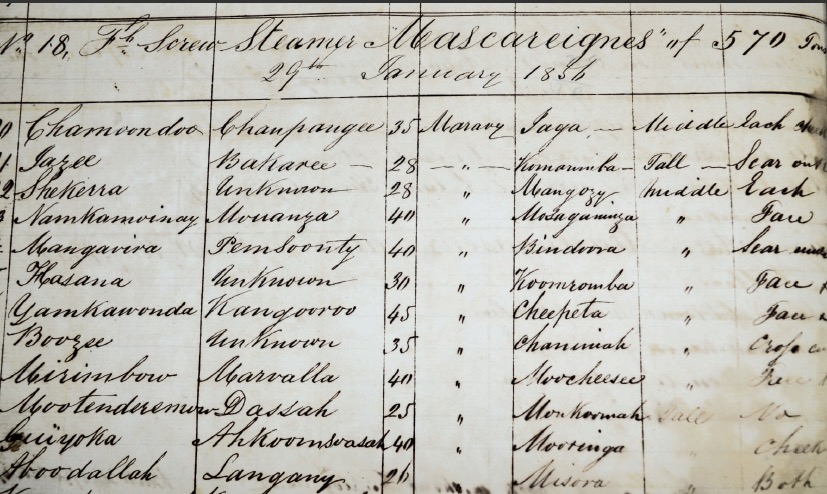 No 18, Fh Screw Steamer "Mascareignes" of 570 Tons
29th January 1856
Chamoondoo Chaupangee 35 Maravy Jaga — Middle Each
Jazee Bakaree — 28 — " — Komanimba — Tall — Scar on
2 Shekerra Unknown 28 " Mangozy middle Each
Namkamoinay Mouanza 40 " Mozaganinga " Face
Mangavira Pemsoonty 40 " Bindoora " Scar
Hasana Unknown 30 " Koomromba " Face
Yamkawonda Kangooroo 45 " Cheepeta " Face
Boozee Unknown 35 " Chanimah " Crofs
Mirimbow Marvalla 40 " Moocheesee " Face
Mootenderemow Dassah 25 " Monkoomah Tall No
Guiyoka Ahkoomswasah 40 " Mooringa " Cheek
Aboodallah Langany 26 Misora " Both